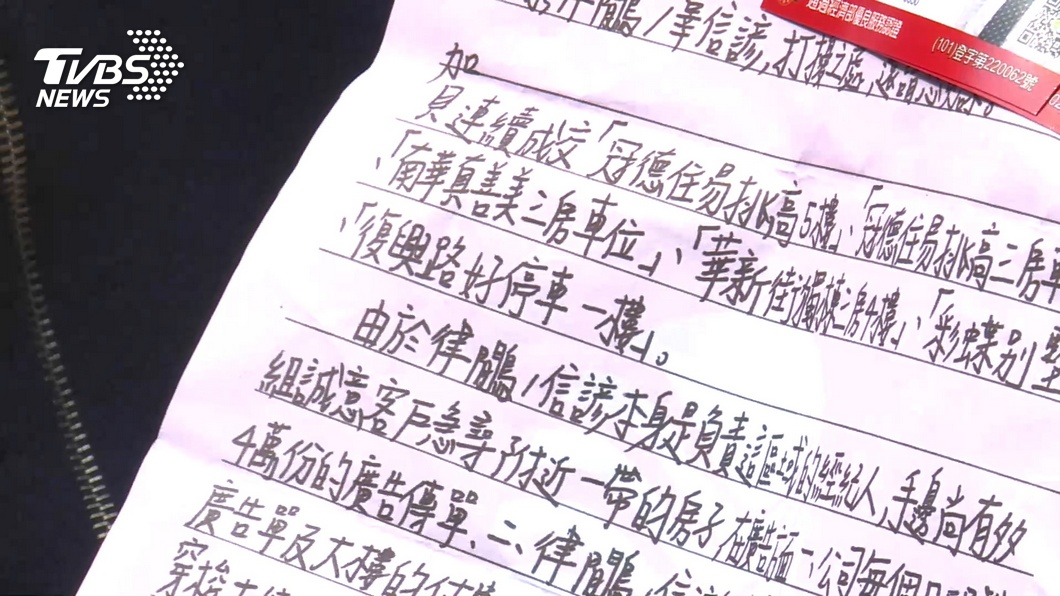 TVBS
NEWS
通過經濟部優良服務認證
(101)登字第220062號
鵬/峯信諺,打擾之處,還請
加
貝連續成交「冠德任易挑高5樓」、「冠德任易挑高三房車
、「南華真善美三房車位」、「華新街邊棟三房4樓」、「彩蝶別墅
、「復興路好停車一樓」。
由於律鵬/信諺本身是負責這區域的經紀人,手邊尚有效
組誠意客戶急尋附近一帶的房子,在廣告面一、公司每個
4萬份的廣告傳單、二、律鵬、信
廣告單及大樓的
穿梭